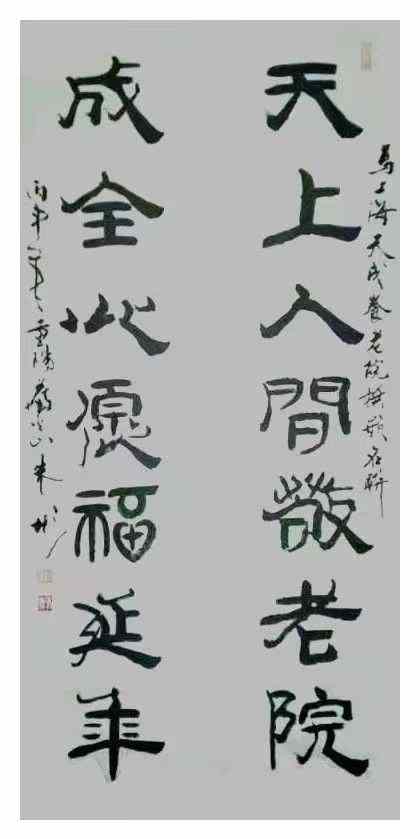 為上海天成養老院撰名聯
天上人間敬老院
成全此愿福延年
丙申年重陽